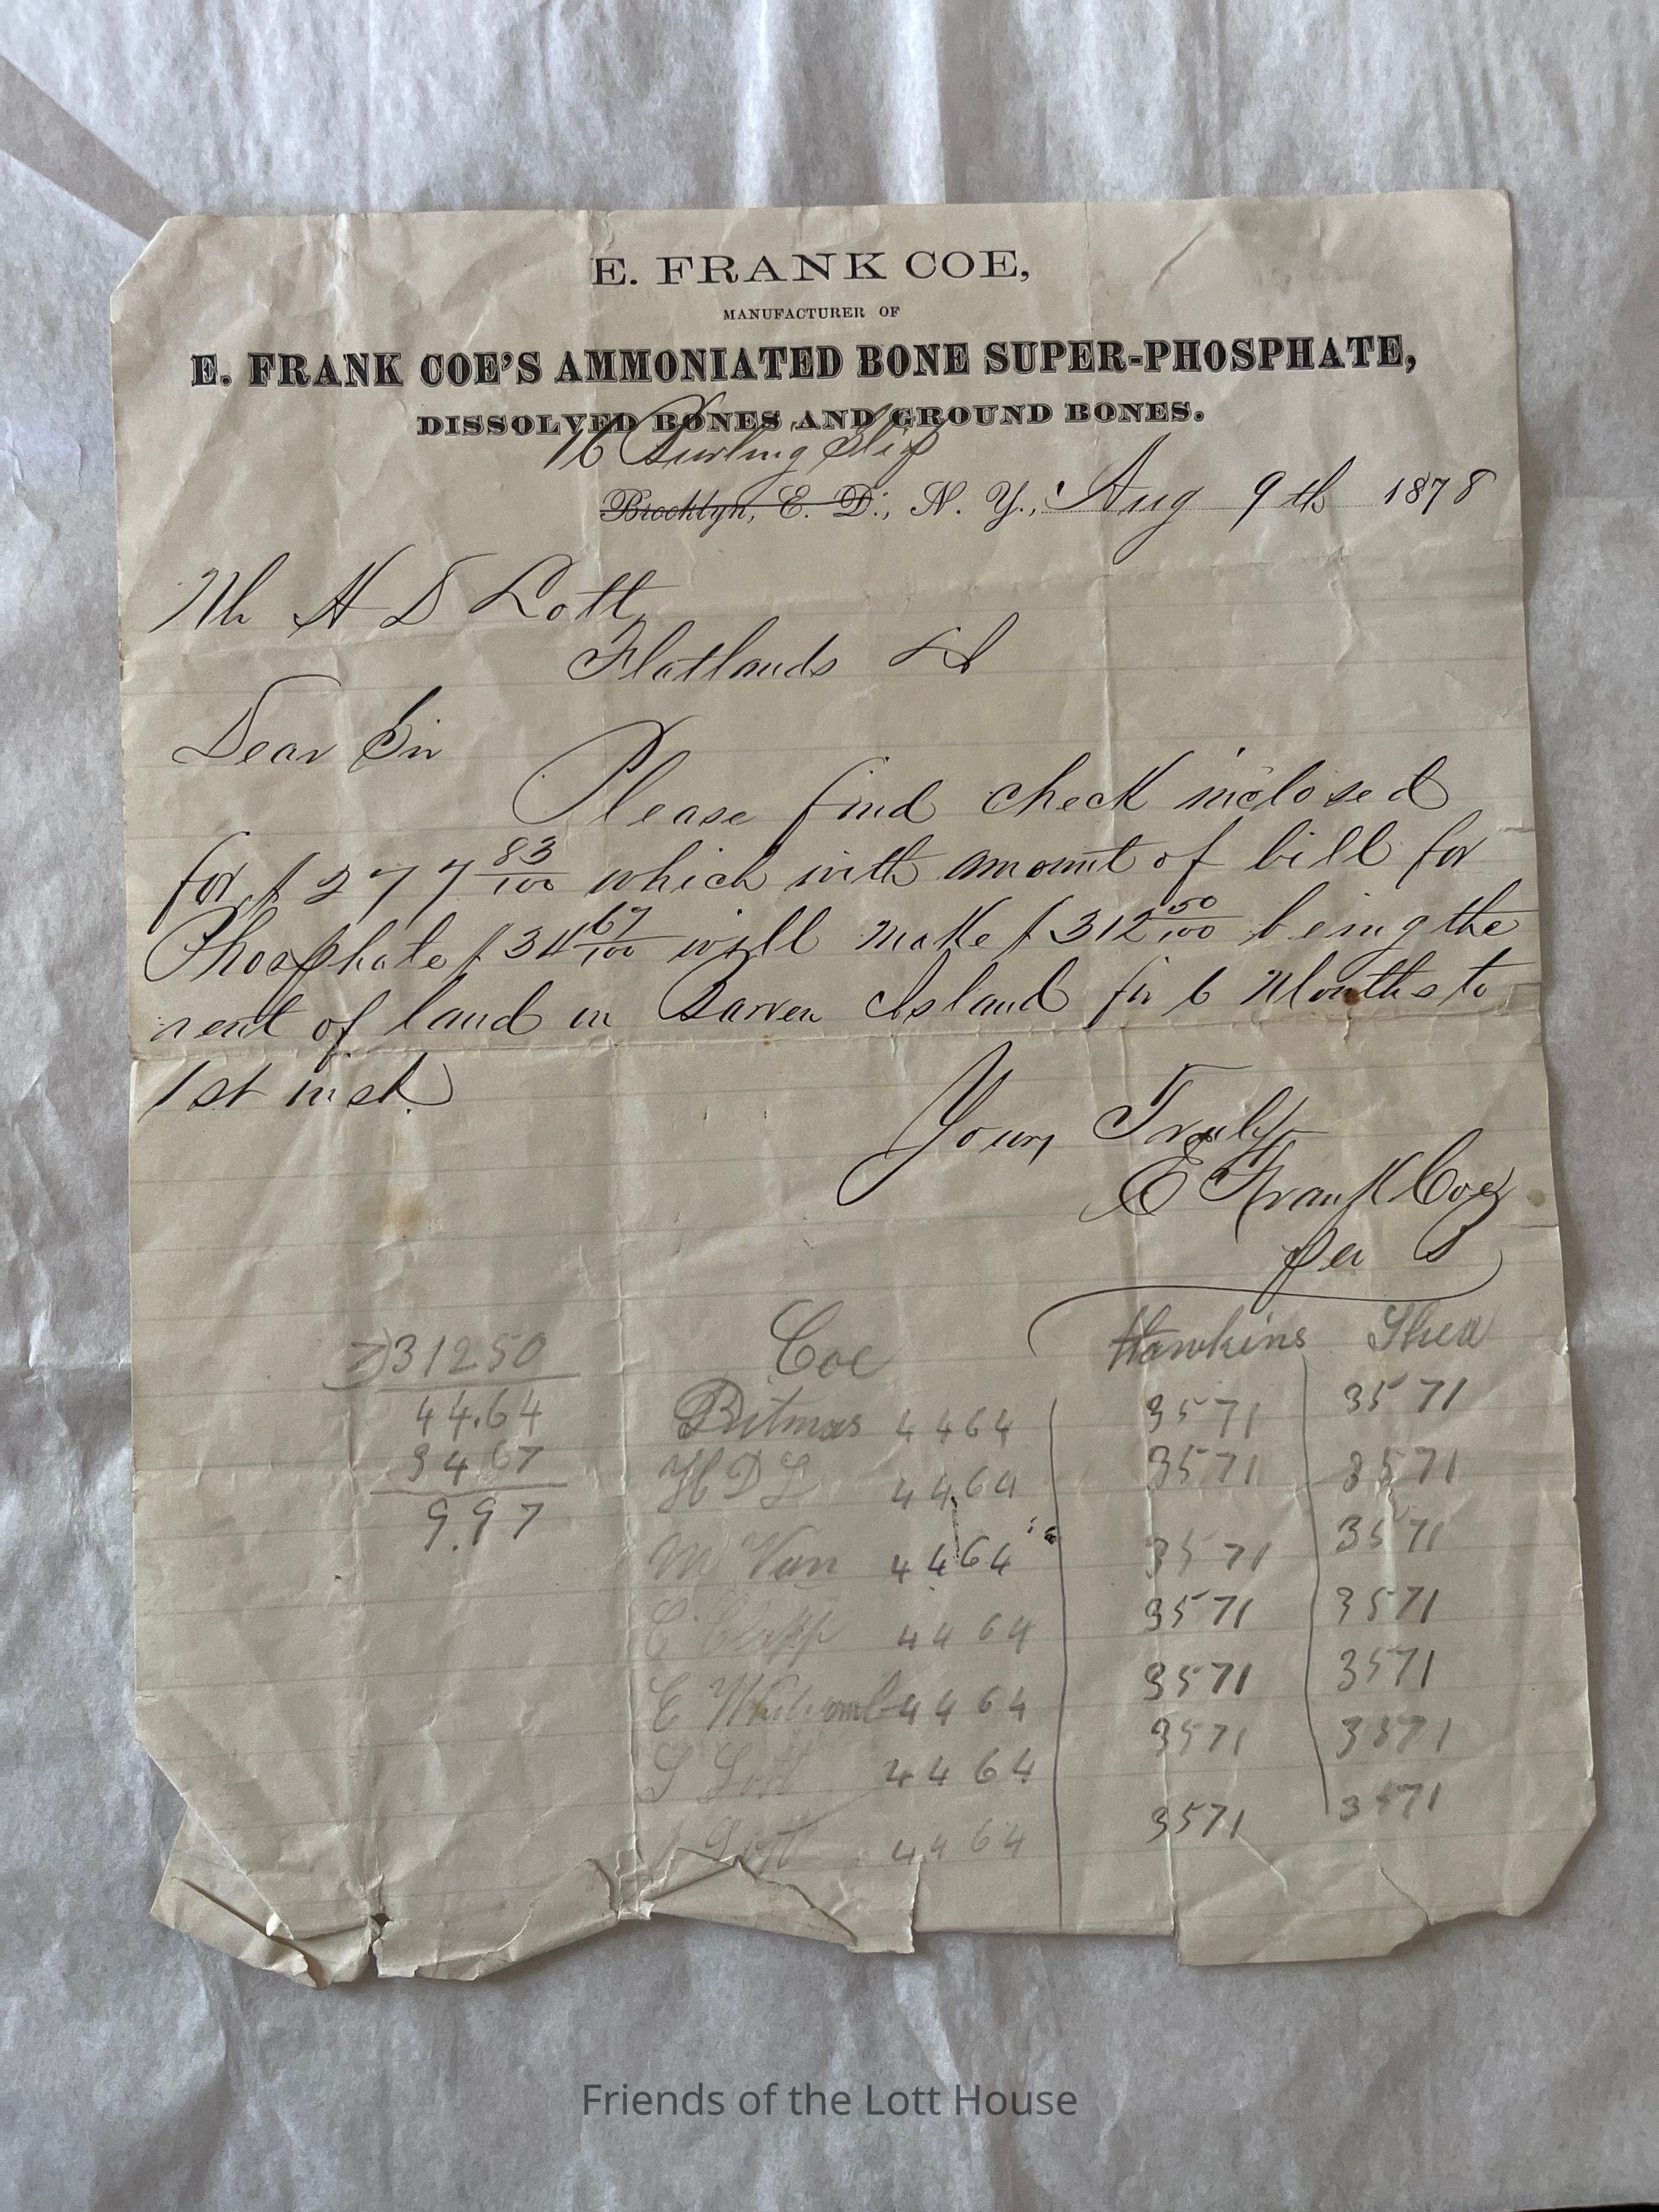 E. FRANK COE,
MANUFACTURER OF
E. FRANK COE'S AMMONIATED BONE SUPER-PHOSPHATE,
DISSOLVED BONES AND GROUND BONES.
16 Burling Slip
Brooklyn, E. D., N. Y., Aug 9th 1878
Mr H D Lott
Flatlands LI
Dear Sir
Please find check inclosed
for $277 83/100 which with amount of bill for
Phosphate $34 67/100 will make $312 50/100 being the
rent of land on Barren Island for 6 Months to
1st inst.
Yours Truly
E Frank Coe
Per S
Coe Hawkins Shea
7)31250
44.64
3467
9.97
Ditmas 4464 3571 3571
H D L 4464 3571 3571
M Van 4464 3571 3571
C Clapp 4464 3571 3571
E 4464 3571 3571
S Lott 4464 3571 3571
J Lott 4464 3571 3571
Friends of the Lott House